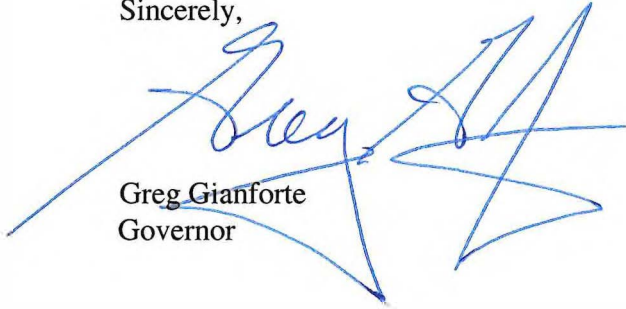 Sincerely,
Greg
Greg Gianforte
Governor